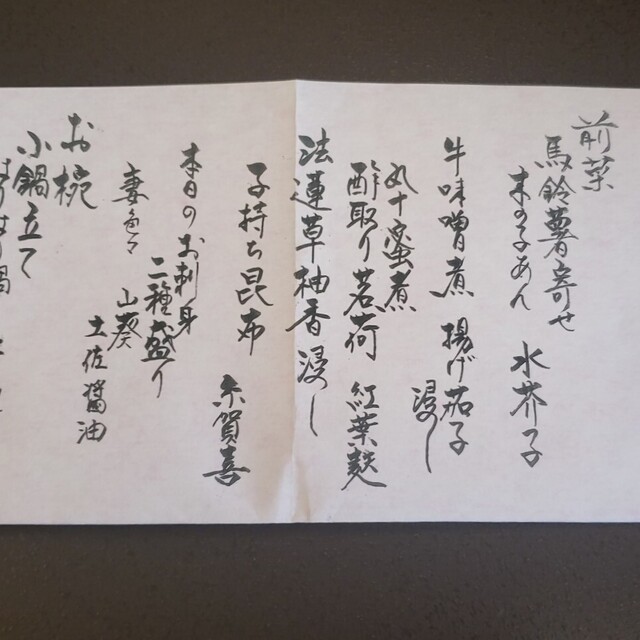 前菜
馬鈴薯寄せ
木の子あん 水芥子
牛味噌煮 揚げ茄子
浸し
丸十蜜煮
酢取り茗荷 紅葉麩
法蓮草柚香浸し
子持ち昆布
糸賀喜
本日のお刺身
二種盛り
妻色々 山葵
土佐醤油
お椀
小鍋立て
はりはり鍋